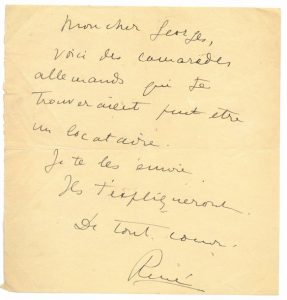 Mon cher Georges,
Voici des camarades
allemands qui te
trouveraient peut être
un locataire.
Je te les envoie.
Ils t'expliqueront.
De tout coeur.
René